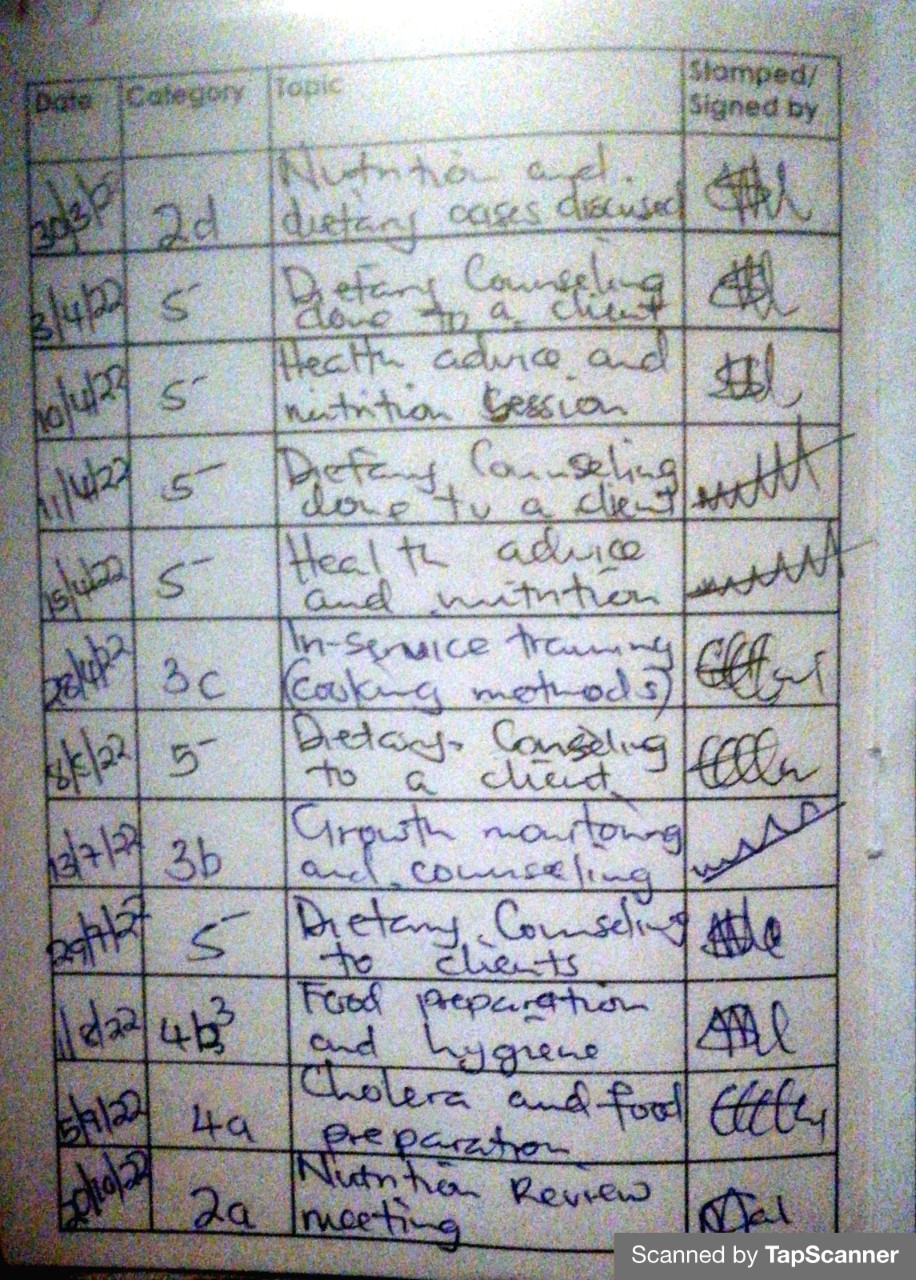 Date Category Topic Stamped/
Signed by
2d Nutrition and
dietary cases discused
3/4/22 5 Dietary Counseling
done to a client
10/4/22 5 Health advice and
nutrition session
11/4/22 5 Dietary Counseling
done to a client
15/4/22 5 Health advice
and nutrition
28/4/22 3c In-service training
(cooking methods)
8/5/22 5 Dietary Counseling
to a client
13/7/22 3b Growth monitoring
and counseling
29/7/22 5 Dietary Counseling
to clients
1/8/22 Food preparation
and hygiene
5/9/22 4a Cholera and food
preparation
20/10/22 2a Nutrition Review
meeting
Scanned by TapScanner